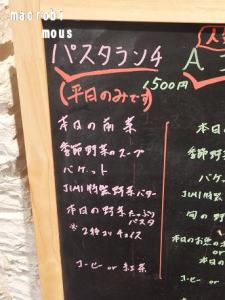 macrobi
mous
パスタランチ
1,500円
(平日のみです)
本日の前菜
季節野菜のスープ
バケット
JUMI特製野菜バター
本日の野菜たっぷり
パスタ
※2種よりチョイス
コーヒー or 紅茶
人気
A
本日
季節野
バケッ
JUMI特
旬の野
本日のお魚
or
本日の
コーヒー or